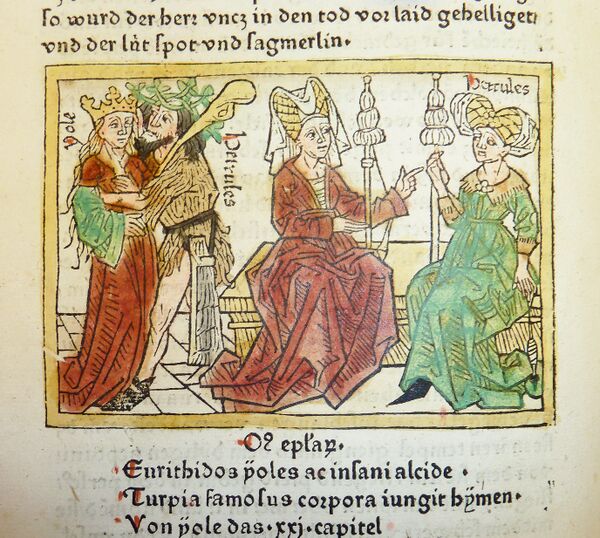 so wurd der herr vncz in den tod vor laid gehelliget
vnd der lüt spot vnd sagmerlin.
yole
Hercules
Hercules
Eurithidos ÿoles ac insani alcide.
Turpia famosus corpora iungit hÿmen.
Von ÿole das .xxj. capitel